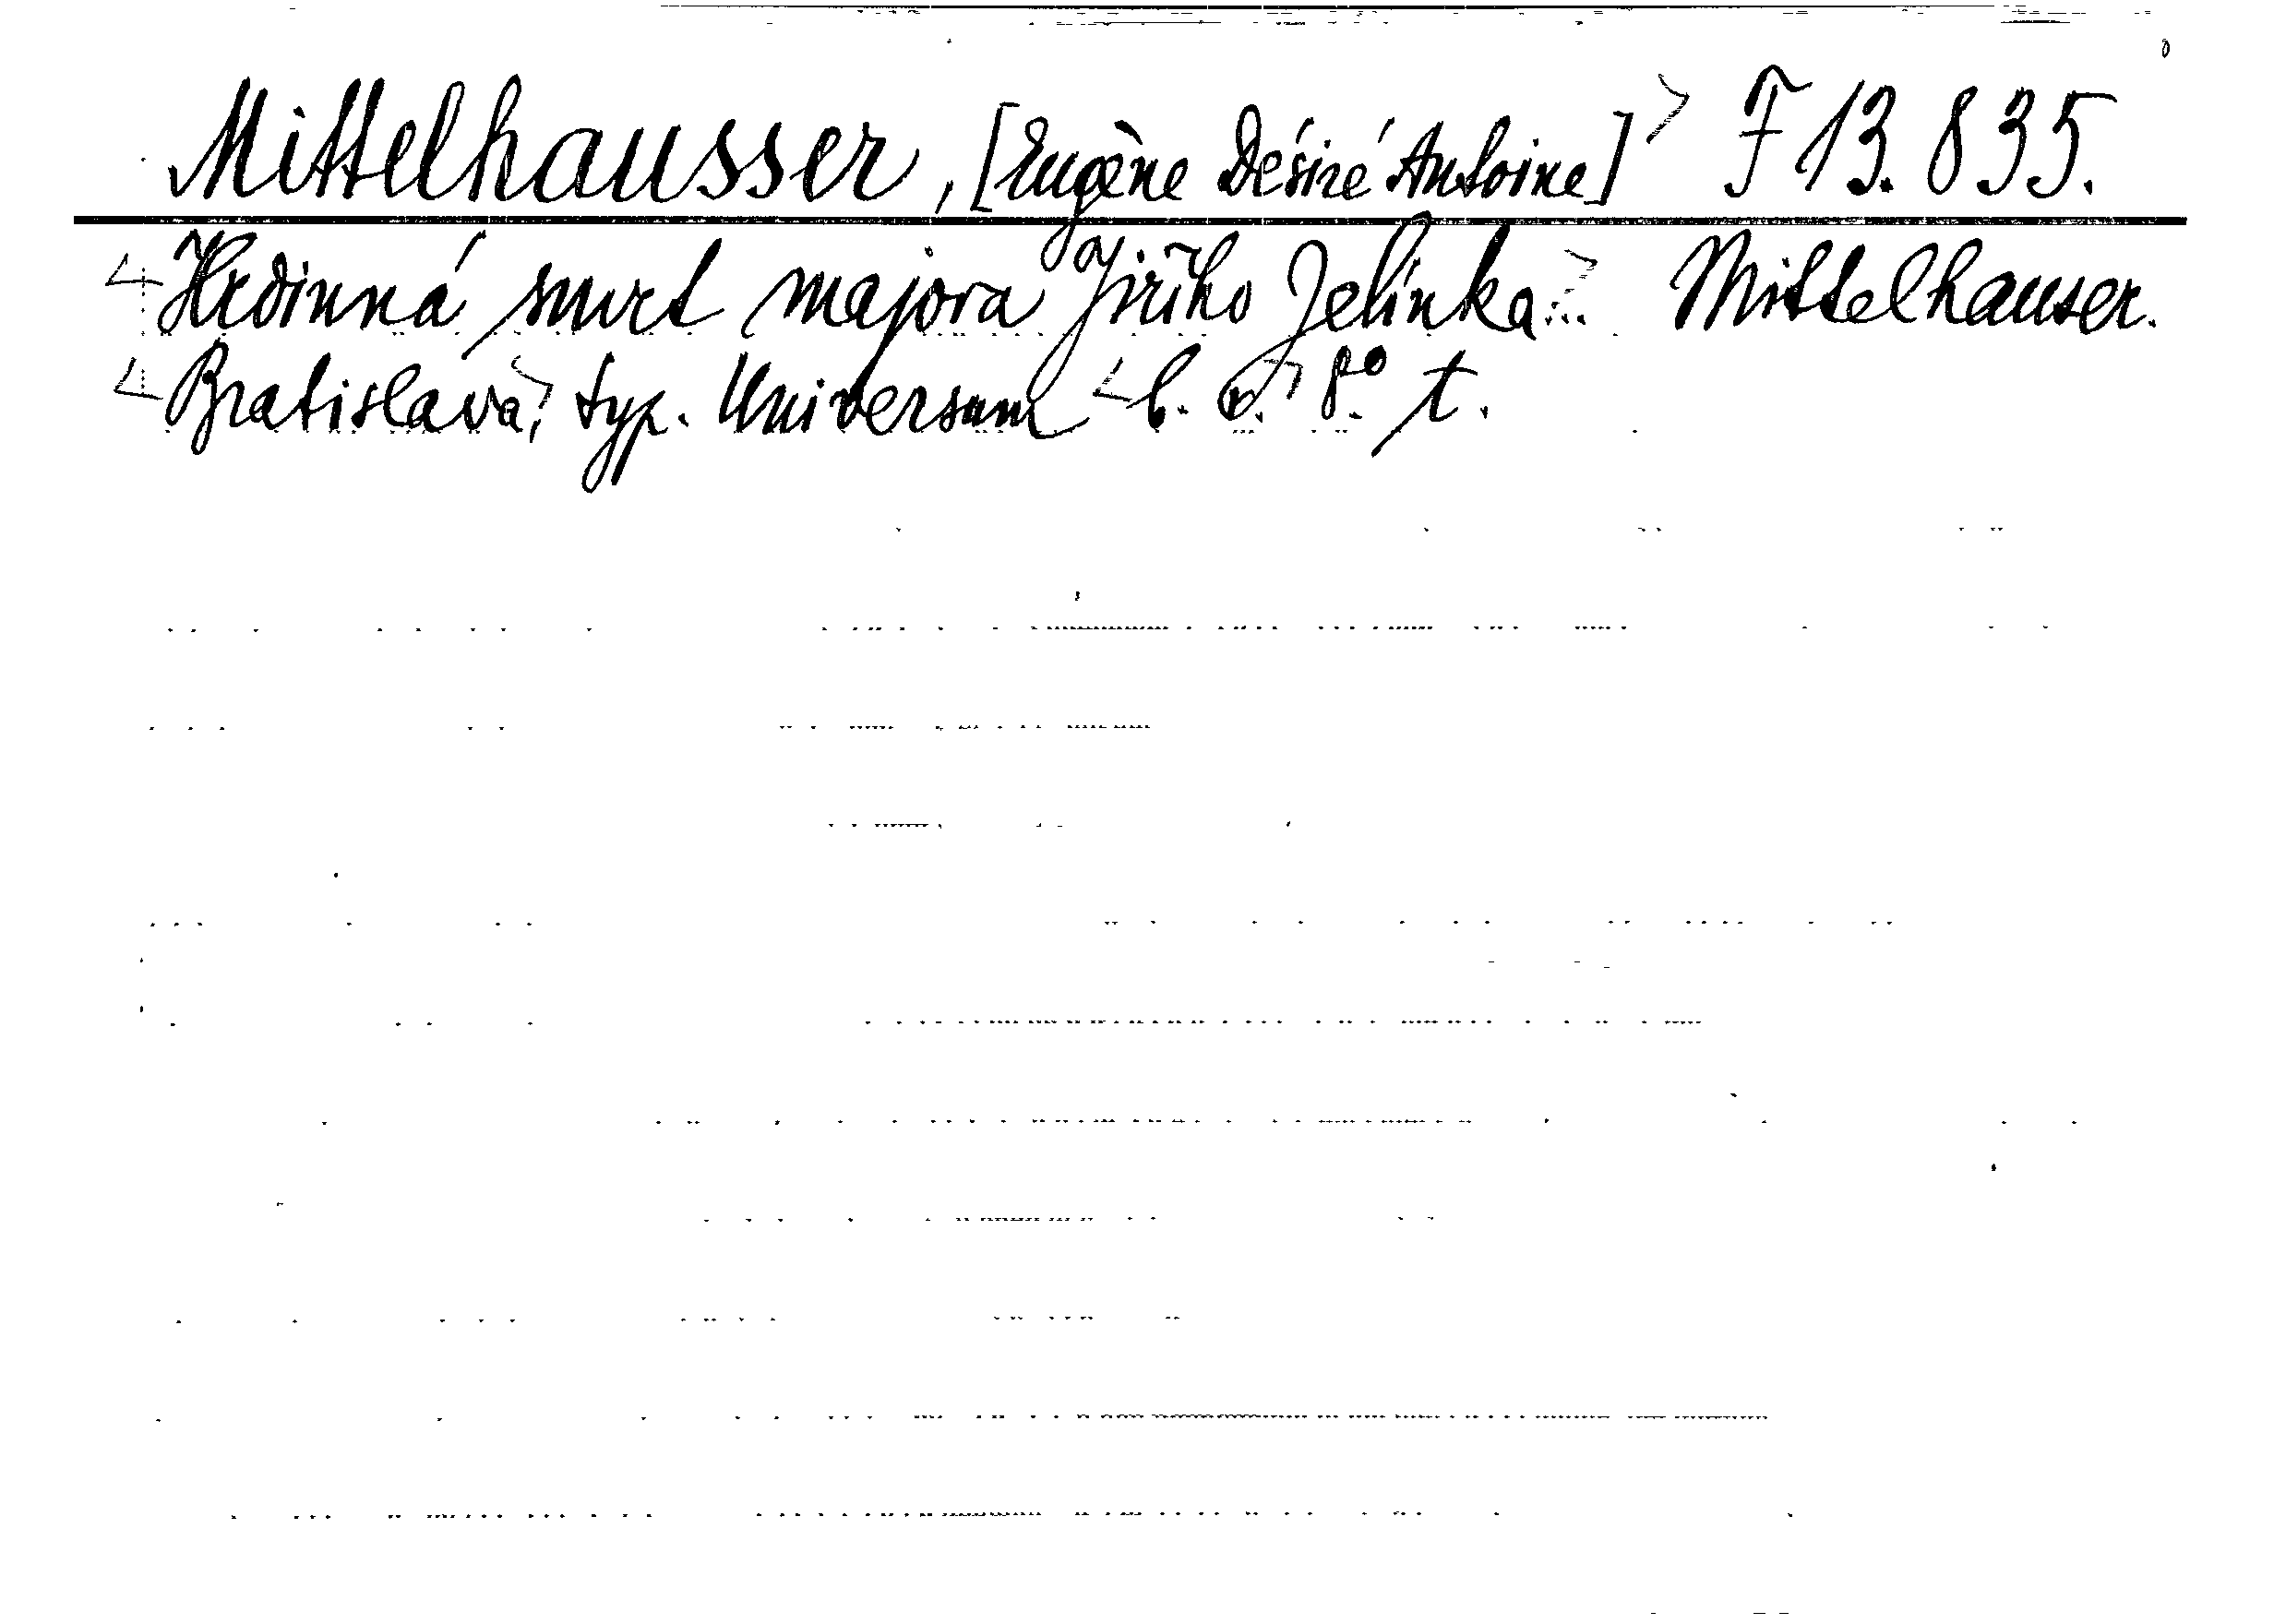 Mittelhausser, [Eugène Désiré Antoine] F 13.835.
Hrdinná smrt majora Jiřího Jelínka... Mittelhauser.
Bratislava, typ. Universum b. r. 8° t.